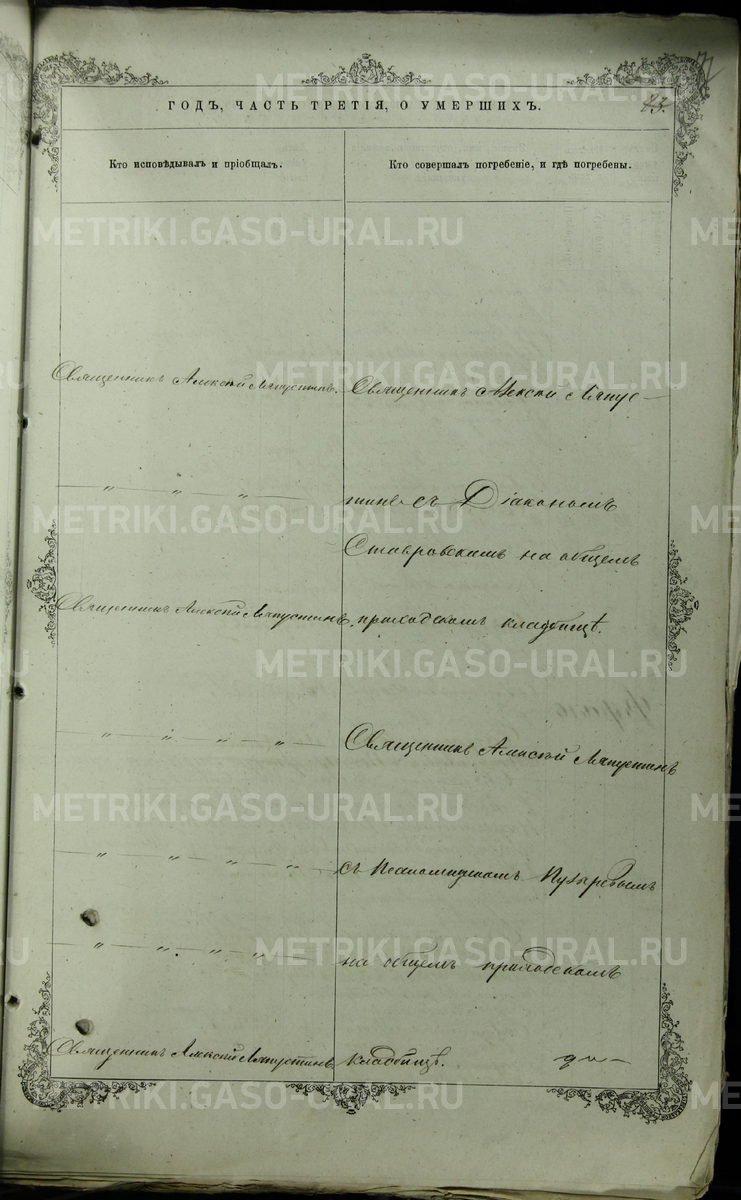 METRIKI.GASO-URAL.RU
73.
ГОДЪ, ЧАСТЬ ТРЕТІЯ, О УМЕРШИХЪ.
Кто исповѣдывалъ и пріобщалъ.
Кто совершалъ погребеніе, и гдѣ погребены.
Священникъ Алексѣй Ляпустинъ.
Священникъ Алексѣй Ляпус-
— " — " — " —
тинъ съ Діакономъ
Ставровскимъ на общемъ
Священникъ Алексѣй Ляпустинъ.
приходскомъ кладбищѣ.
— " — " — " — " —
Священникъ Алексѣй Ляпустинъ
— " — " — " — " —
съ Псаломщикомъ Пузыревымъ
— " — " — " — " —
на общемъ приходскомъ
Священникъ Алексѣй Ляпустинъ
кладбищѣ.